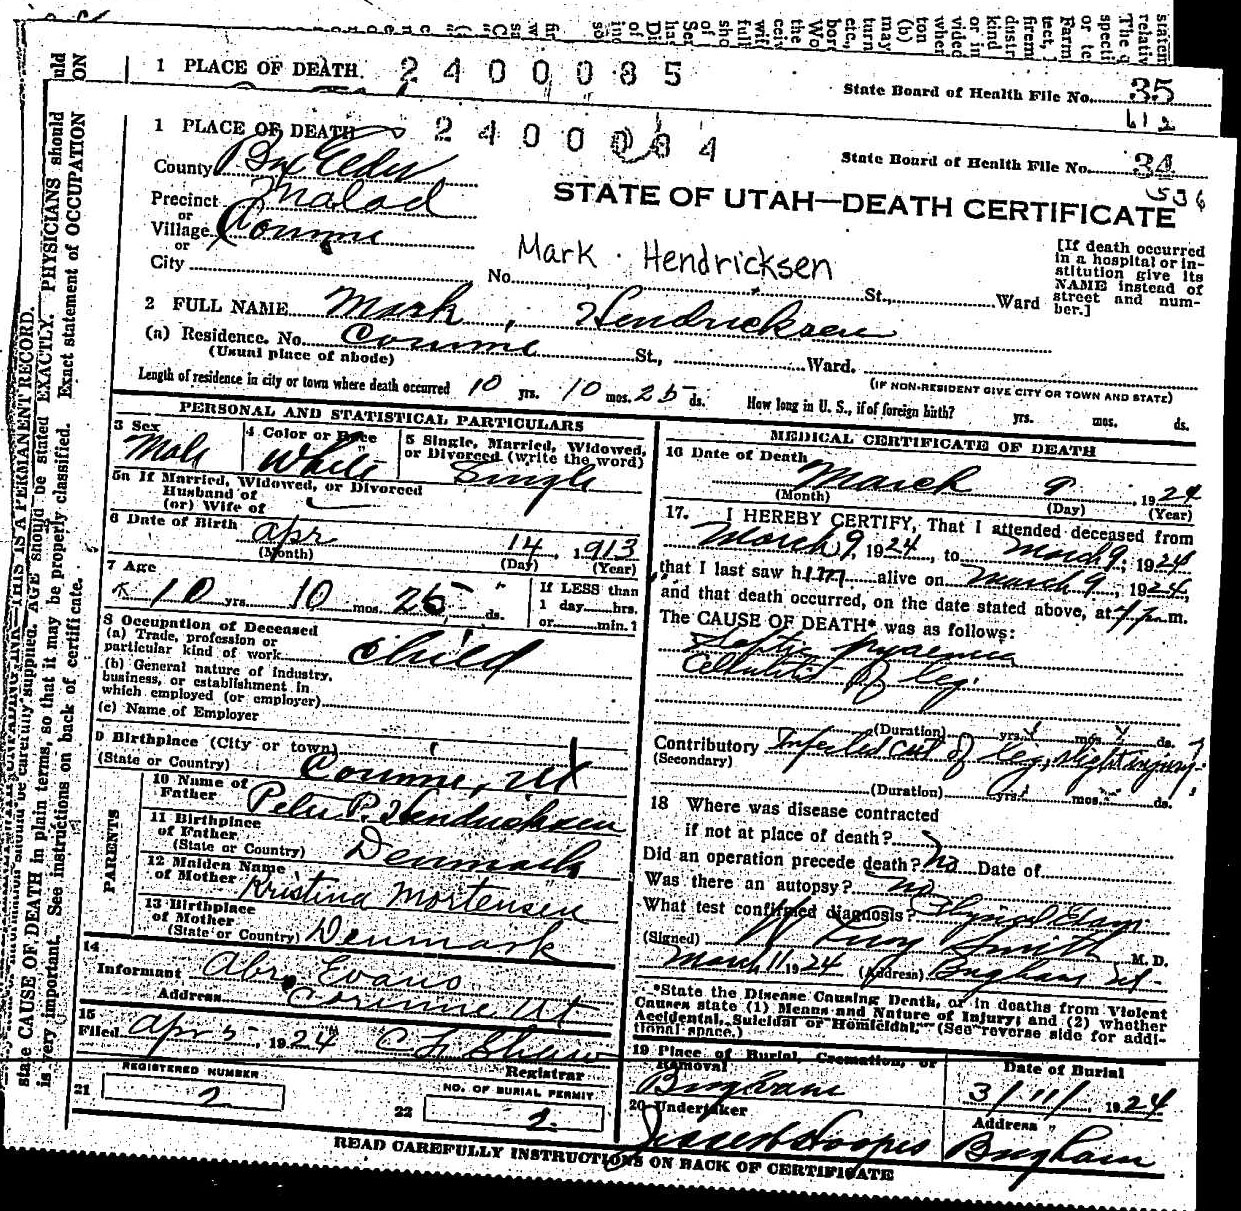 1 PLACE OF DEATH. 2400085
State Board of Health File No. 35
612
1 PLACE OF DEATH 2400034
State Board of Health File No. 34
536
County Box Elder
STATE OF UTAH—DEATH CERTIFICATE
Precinct Malad
or
Village Corinne
or
City
Mark Hendricksen
No. St., Ward
[If death occurred
in a hospital or in-
stitution give its
NAME instead of
street and num-
ber.]
2 FULL NAME Mark Hendricksen
(a) Residence. No. Corinne St., Ward.
(Usual place of abode)
(IF NON-RESIDENT GIVE CITY OR TOWN AND STATE)
Length of residence in city or town where death occurred 10 yrs. 10 mos. 25 ds. How long in U. S., if of foreign birth? yrs. mos. ds.
PERSONAL AND STATISTICAL PARTICULARS
3 Sex
Male
4 Color or Race
White
5 Single, Married, Widowed,
or Divorced (write the word)
Single
5a If Married, Widowed, or Divorced
Husband of
(or) Wife of
6 Date of Birth Apr 14, 1913
(Month) (Day) (Year)
7 Age
10 yrs. 10 mos. 25 ds.
If LESS than
1 day hrs.
or min.?
8 Occupation of Deceased
(a) Trade, profession or
particular kind of work Child
(b) General nature of industry,
business, or establishment in
which employed (or employer)
(c) Name of Employer
9 Birthplace (City or town)
(State or Country) Corinne, Ut
PARENTS
10 Name of
Father Peter P. Hendricksen
11 Birthplace
of Father
(State or Country) Denmark
12 Maiden Name
of Mother Kristina Mortensen
13 Birthplace
of Mother
(State or Country) Denmark
14
Informant Abr. Evans
Address Corinne Ut
15
Filed Apr 5, 1924 C F Shaw
Registrar
REGISTERED NUMBER
21 2
NO. OF BURIAL PERMIT
22 2
MEDICAL CERTIFICATE OF DEATH
16 Date of Death
March 9, 1924
(Month) (Day) (Year)
17. I HEREBY CERTIFY, That I attended deceased from
March 9, 1924, to March 9, 1924
that I last saw him alive on March 9, 1924,
and that death occurred, on the date stated above, at 7 p.m.
The CAUSE OF DEATH* was as follows:
Septic pyaemia
Cellulitis of leg.
(Duration) yrs. mos. ds.
Contributory Infected cut of leg, slight injury.
(Secondary)
(Duration) yrs. mos. ds.
18 Where was disease contracted
if not at place of death?
Did an operation precede death? No Date of
Was there an autopsy? no
What test confirmed diagnosis? Physical Exam
(Signed) Smith M. D.
March 11 1924 (Address) Brigham Ut.
*State the Disease Causing Death, or in deaths from Violent
Causes state (1) Means and Nature of Injury; and (2) whether
Accidental, Suicidal or Homicidal. (See reverse side for addi-
tional space.)
19 Place of Burial, Cremation, or
Removal
Brigham
Date of Burial
3/11/, 1924
20 Undertaker
Address
Brigham
READ CAREFULLY INSTRUCTIONS ON BACK OF CERTIFICATE